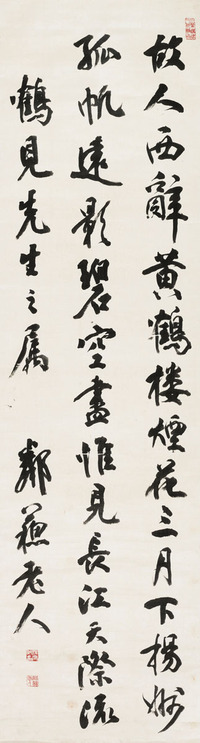 故人西辭黃鶴樓煙花三月下揚州
孤帆遠影碧空盡惟見長江天際流
鶴見先生之屬　鄰蘇老人